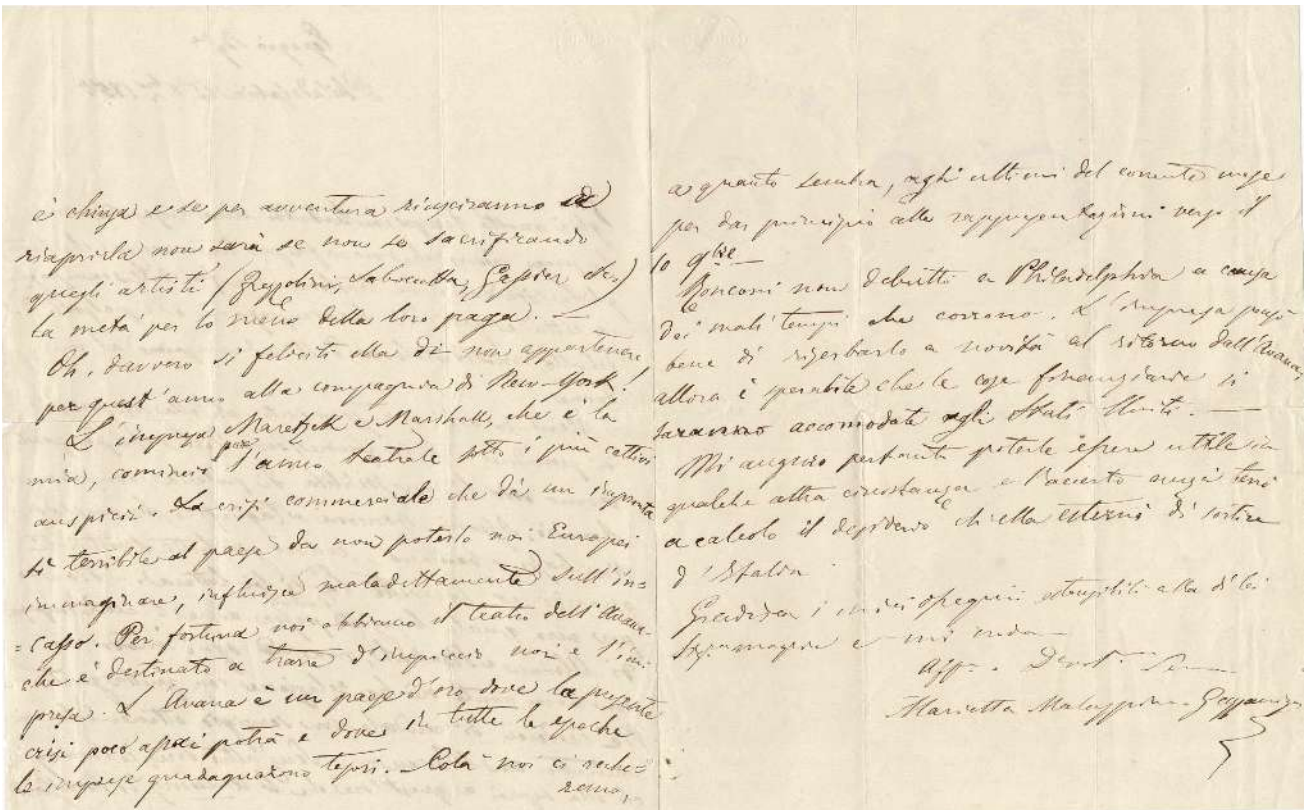 è chiusa e se per avventura riusciranno a
riaprirla non sarà se non se sacrificando
quegli artisti (Frezzolini, Labocetta, Gassier &c.)
la metà per lo meno della loro paga. —
Oh, davvero si feliciti ella di non appartenere
per quest'anno alla compagnia di New-York!
L'impresa Maretzek e Marshall, che è la
mia, cominciò pure l'anno teatrale sotto i più cattivi
auspicii. La crisi commerciale che dà un impronta
sì terribile al paese da non poterlo noi Europei
immaginare, influisce maladettamente sull'in=
=casso. Per fortuna noi abbiamo il teatro dell'Avana
che è destinato a trarre d'impiccio noi e l'im
presa. L'Avana è un paese d'oro dove la presente
crisi poco assai potrà e dove in tutte le epoche
le imprese guadagnarono tesori. — Colà noi ci reche=
remo,
a quanto sembra, agli ultimi del corrente mese
per dar principio alle rappresentazioni verso il
10 9bre —
Ronconi non debuttò a Philadelphia a causa
dei mali tempi che corrono. L'impresa pensò
bene di riserbarlo a novità al ritorno dall'Avana;
allora è sperabile che le cose finanziarie si
saranno accomodate agli Stati Uniti. —
Mi auguro pertanto poterle essere utile in
qualche altra circostanza e l'accerto anzi terrò
a calcolo il desiderio ch'ella esterni di sortire
d'Italia
Gradisca i miei ossequii ostensibili alla di lei
Sigra moglie e mi creda —
Aff. Devot.
Marietta Malaspina Gazzaniga